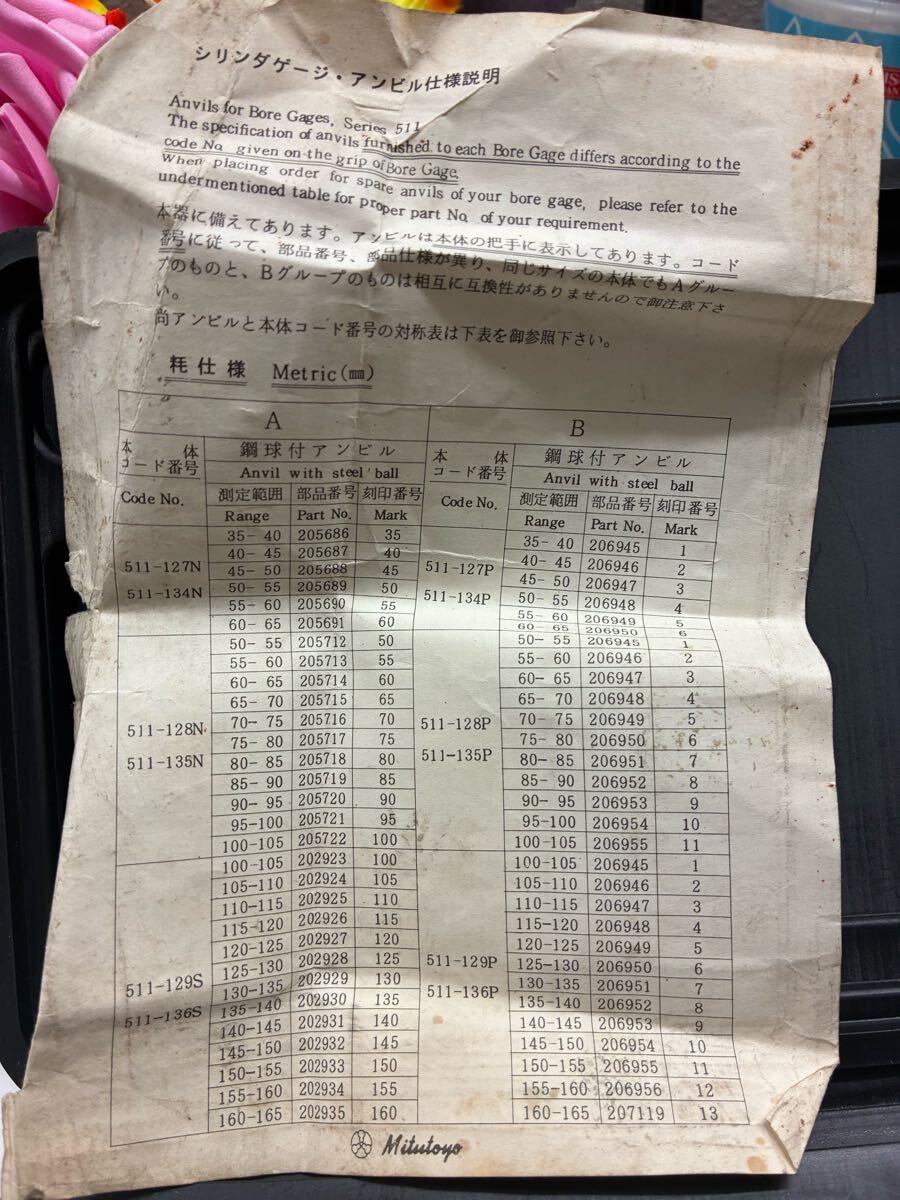 シリンダゲージ・アンビル仕様説明
Anvils for Bore Gages, Series 511
The specification of anvils furnished to each Bore Gage differs according to the
code No. given on the grip of Bore Gage.
When placing order for spare anvils of your bore gage, please refer to the
undermentioned table for proper part No. of your requirement.
本器に備えてあります。アンビルは本体の把手に表示してあります。コード
番号に従って、部品番号、部品仕様が異り、同じサイズの本体でもAグルー
プのものと、Bグループのものは相互に互換性がありませんので御注意下さ
い。
尚アンビルと本体コード番号の対称表は下表を御参照下さい。
粍仕様 Metric(㎜)
A B
本体 コード番号 Code No. 鋼球付アンビル 本体 コード番号 Code No. 鋼球付アンビル
Anvil with steel ball Anvil with steel ball
測定範囲 部品番号 刻印番号 測定範囲 部品番号 刻印番号
Range Part No. Mark Range Part No. Mark
511-127N 511-134N 511-127P 511-134P
35-40 205686 35 35-40 206945 1
40-45 205687 40 40-45 206946 2
45-50 205688 45 45-50 206947 3
50-55 205689 50 50-55 206948 4
55-60 205690 55 55-60 206949 5
60-65 205691 60 60-65 206950 6
511-128N 511-135N 511-128P 511-135P
50-55 205712 50 50-55 206945 1
55-60 205713 55 55-60 206946 2
60-65 205714 60 60-65 206947 3
65-70 205715 65 65-70 206948 4
70-75 205716 70 70-75 206949 5
75-80 205717 75 75-80 206950 6
80-85 205718 80 80-85 206951 7
85-90 205719 85 85-90 206952 8
90-95 205720 90 90-95 206953 9
95-100 205721 95 95-100 206954 10
100-105 205722 100 100-105 206955 11
511-129S 511-136S 511-129P 511-136P
100-105 202923 100 100-105 206945 1
105-110 202924 105 105-110 206946 2
110-115 202925 110 110-115 206947 3
115-120 202926 115 115-120 206948 4
120-125 202927 120 120-125 206949 5
125-130 202928 125 125-130 206950 6
130-135 202929 130 130-135 206951 7
135-140 202930 135 135-140 206952 8
140-145 202931 140 140-145 206953 9
145-150 202932 145 145-150 206954 10
150-155 202933 150 150-155 206955 11
155-160 202934 155 155-160 206956 12
160-165 202935 160 160-165 207119 13
Mitutoyo